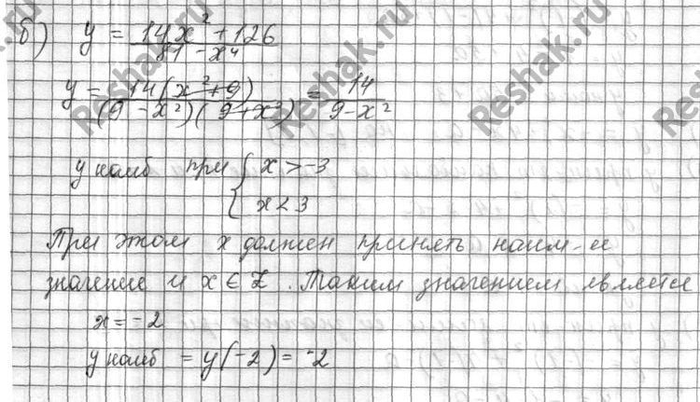 б) y = 14x² + 126 / 81 - x⁴
y = 14(x² + 9) / (9 - x²)(9 + x²) = 14 / 9 - x²
y наиб при { x > -3
x < 3
При этом x должен принять наим-ее
значение и x ∈ Z. Таким значением является
x = -2
y наиб = y(-2) = -2
Reshak.ru
Reshak.ru
Reshak.ru
Reshak.ru